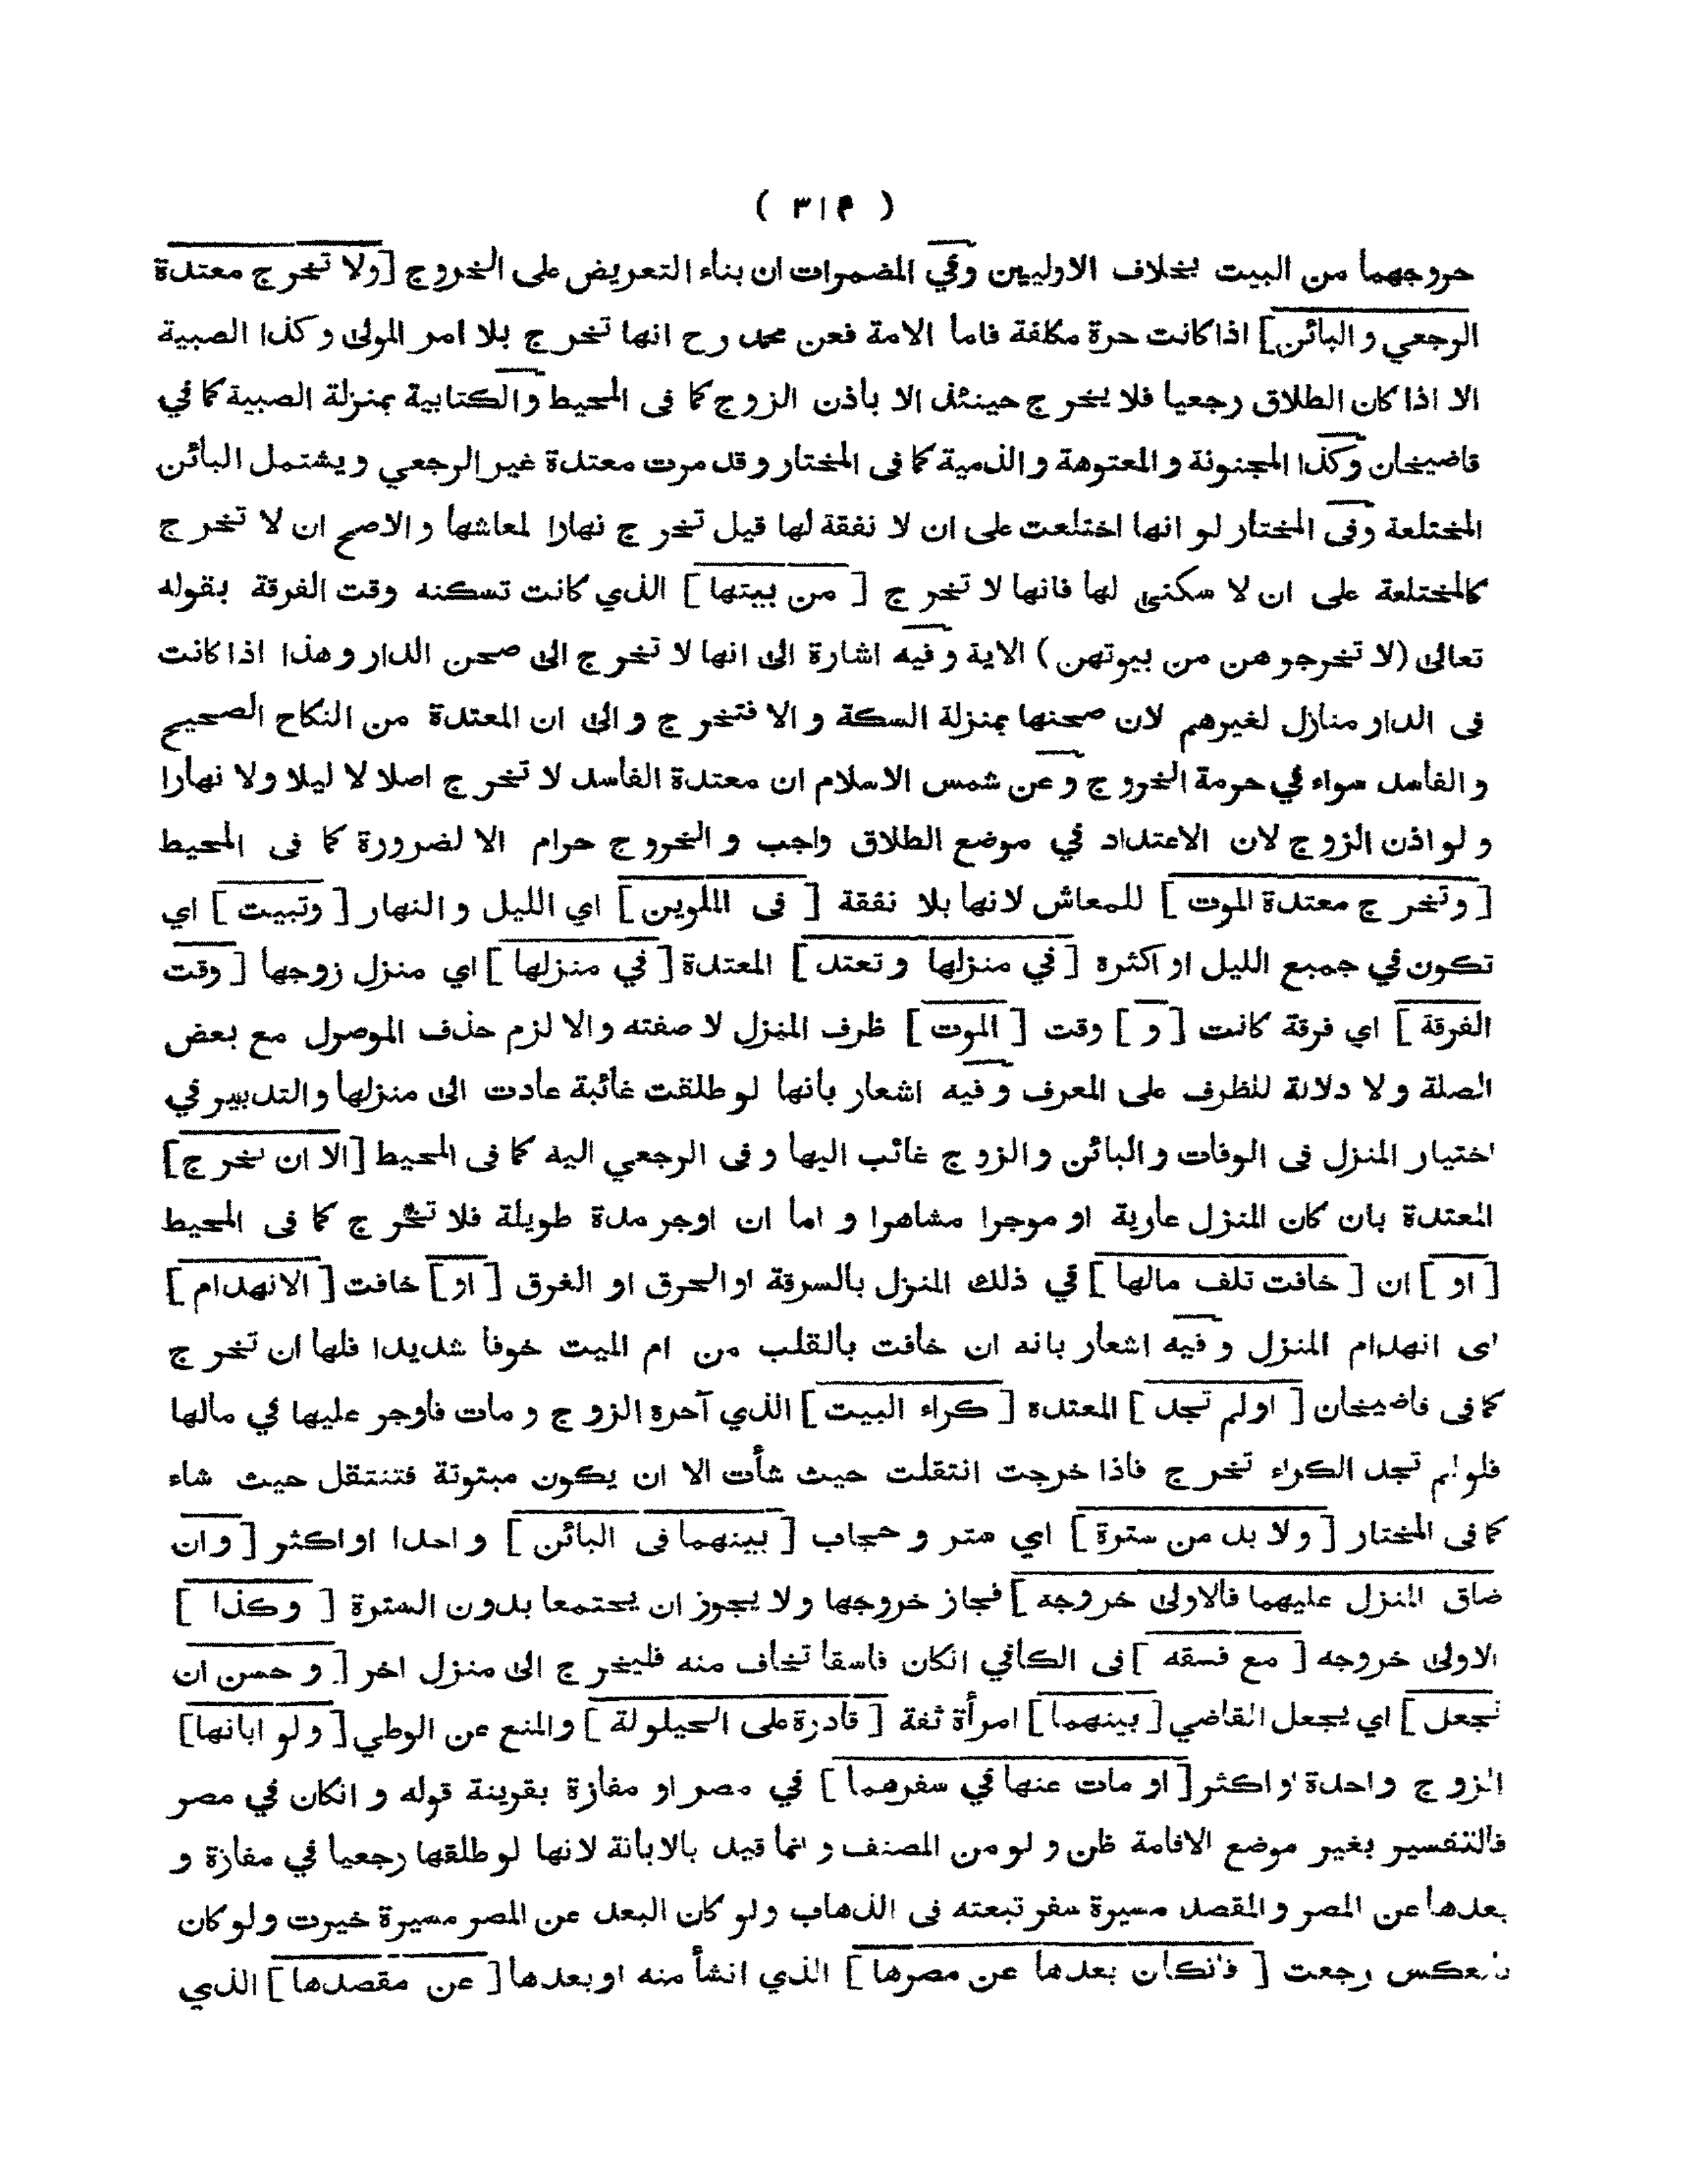 ( ٣١۴ )
خروجهما من البيت بخلاف الاوليين وفي المضمرات ان بناء التعريض على الخروج [ولا تخرج معتدة
الرجعي والبائن] اذا كانت حرة مكلفة فاما الامة فعن محمد رح انها تخرج بلا امر المولى وكذا الصبية
الا اذا كان الطلاق رجعيا فلا يخرج حينئذ الا باذن الزوج كما فى المحيط والكتابية بمنزلة الصبية كما في
قاضيخان وكذا المجنونة والمعتوهة والذمية كما فى المختار وقد مرت معتدة غير الرجعي ويشتمل البائن
المختلعة وفى المختار لو انها اختلعت على ان لا نفقة لها قيل تخرج نهارا لمعاشها والاصح ان لا تخرج
كالمختلعة على ان لا سكنى لها فانها لا تخرج [ من بيتها ] الذي كانت تسكنه وقت الفرقة بقوله
تعالى (لا تخرجوهن من بيوتهن) الاية وفيه اشارة الى انها لا تخرج الى صحن الدار وهذا اذا كانت
فى الدار منازل لغيرهم لان صحنها بمنزلة السكة والا فتخرج والى ان المعتدة من النكاح الصحيح
والفاسد سواء في حرمة الخروج وعن شمس الاسلام ان معتدة الفاسد لا تخرج اصلا لا ليلا ولا نهارا
ولو اذن الزوج لان الاعتداد في موضع الطلاق واجب والخروج حرام الا لضرورة كما فى المحيط
[ وتخرج معتدة الموت ] للمعاش لانها بلا نفقة [ فى الملوين ] اي الليل والنهار [ وتبيت ] اي
تكون في جميع الليل او اكثره [ في منزلها وتعتد ] المعتدة [ في منزلها ] اي منزل زوجها [ وقت
الفرقة ] اي فرقة كانت [ و ] وقت [ الموت ] ظرف المنزل لا صفته والا لزم حذف الموصول مع بعض
الصلة ولا دلالة للظرف على المعرف وفيه اشعار بانها لو طلقت غائبة عادت الى منزلها والتدبير في
اختيار المنزل فى الوفات والبائن والزوج غائب اليها وفى الرجعي اليه كما فى المحيط [الا ان تخرج]
المعتدة بان كان المنزل عارية او موجرا مشاهرا و اما ان اوجر مدة طويلة فلا تخرج كما فى المحيط
[ او ] ان [ خافت تلف مالها ] في ذلك المنزل بالسرقة او الحرق او الغرق [ او ] خافت [ الانهدام ]
اى انهدام المنزل وفيه اشعار بانه ان خافت بالقلب من ام الميت خوفا شديدا فلها ان تخرج
كما فى قاضيخان [ اولم تجد ] المعتدة [ كراء البيت ] الذي آجره الزوج ومات فاوجر عليها في مالها
فلو لم تجد الكراء تخرج فاذا خرجت انتقلت حيث شأت الا ان يكون مبتوتة فتنتقل حيث شاء
كما فى المختار [ ولا بد من سترة ] اي ستر وحجاب [ بينهما فى البائن ] واحدا او اكثر [ وان
ضاق المنزل عليهما فالاولى خروجه ] فجاز خروجها ولا يجوز ان يجتمعا بدون السترة [ وكذا ]
الاولى خروجه [ مع فسقه ] فى الكافي انكان فاسقا تخاف منه فليخرج الى منزل اخر [ وحسن ان
تجعل ] اي يجعل القاضي [ بينهما ] امرأة ثقة [ قادرة على الحيلولة ] والمنع عن الوطي [ ولو ابانها]
الزوج واحدة او اكثر [ او مات عنها في سفرهما ] في مصر او مفازة بقرينة قوله و انكان في مصر
فالتفسير بغير موضع الاقامة ظن و لو من المصنف و انما قيد بالابانة لانها لو طلقها رجعيا في مفازة و
بعدها عن المصر والمقصد مسيرة سفر تبعته فى الذهاب ولو كان البعد عن المصر مسيرة خيرت ولو كان
بالعكس رجعت [ فانكان بعدها عن مصرها ] الذي انشأ منه او بعدها [ عن مقصدها ] الذي